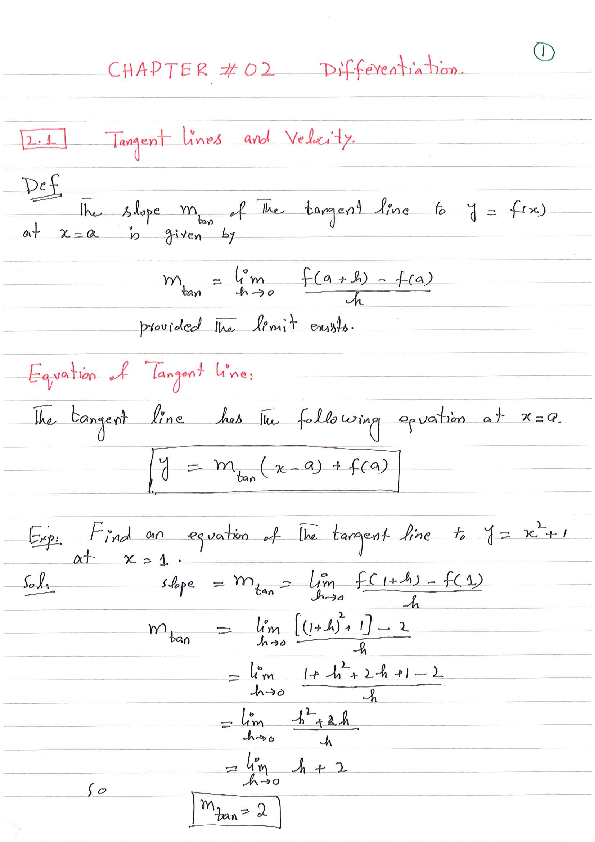 1
CHAPTER # 02 Differentiation.
2.1 Tangent lines and Velocity.
Def
The slope m_tan of The tangent line to y = f(x)
at x=a is given by
m_tan = lim_{h→0} \frac{f(a+h) - f(a)}{h}
provided The limit exists.
Equation of Tangent line:
The tangent line has The following equation at x=a.
y = m_tan (x-a) + f(a)
Exp: Find an equation of The tangent line to y = x²+1
at x = 1.
Sol: slope = m_tan = lim_{h→0} \frac{f(1+h) - f(1)}{h}
m_tan = lim_{h→0} \frac{[(1+h)²+1] - 2}{h}
= lim_{h→0} \frac{1+h²+2h+1-2}{h}
= lim_{h→0} \frac{h²+2h}{h}
= lim_{h→0} h + 2
so
m_tan = 2